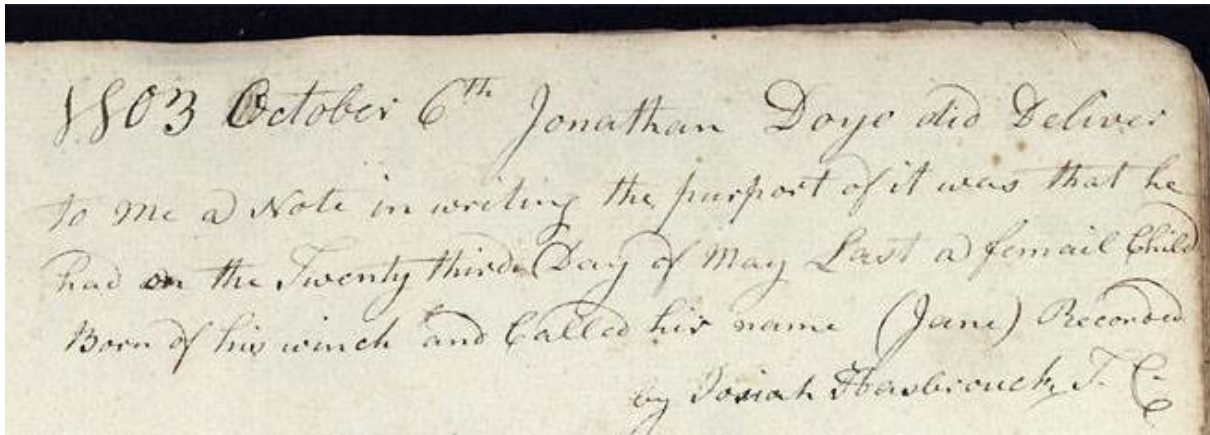 1803 October 6th Jonathan Doyo did Deliver
to me a Note in writing the purport of it was that he
had on the Twenty third Day of May Last a femail Child
Born of his winch and Called hir name (Jane) Recorded
by Josiah Hasbrouck, T. C.